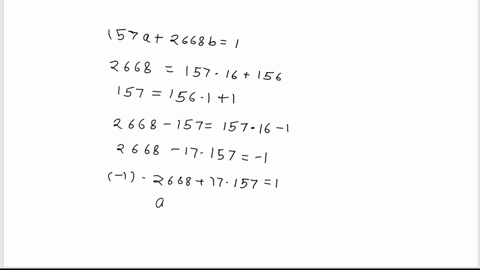 157a + 2668b = 1
2668 = 157 · 16 + 156
157 = 156 · 1 + 1
2668 - 157 = 157 · 16 - 1
2668 - 17 · 157 = -1
(-1) · 2668 + 17 · 157 = 1
a